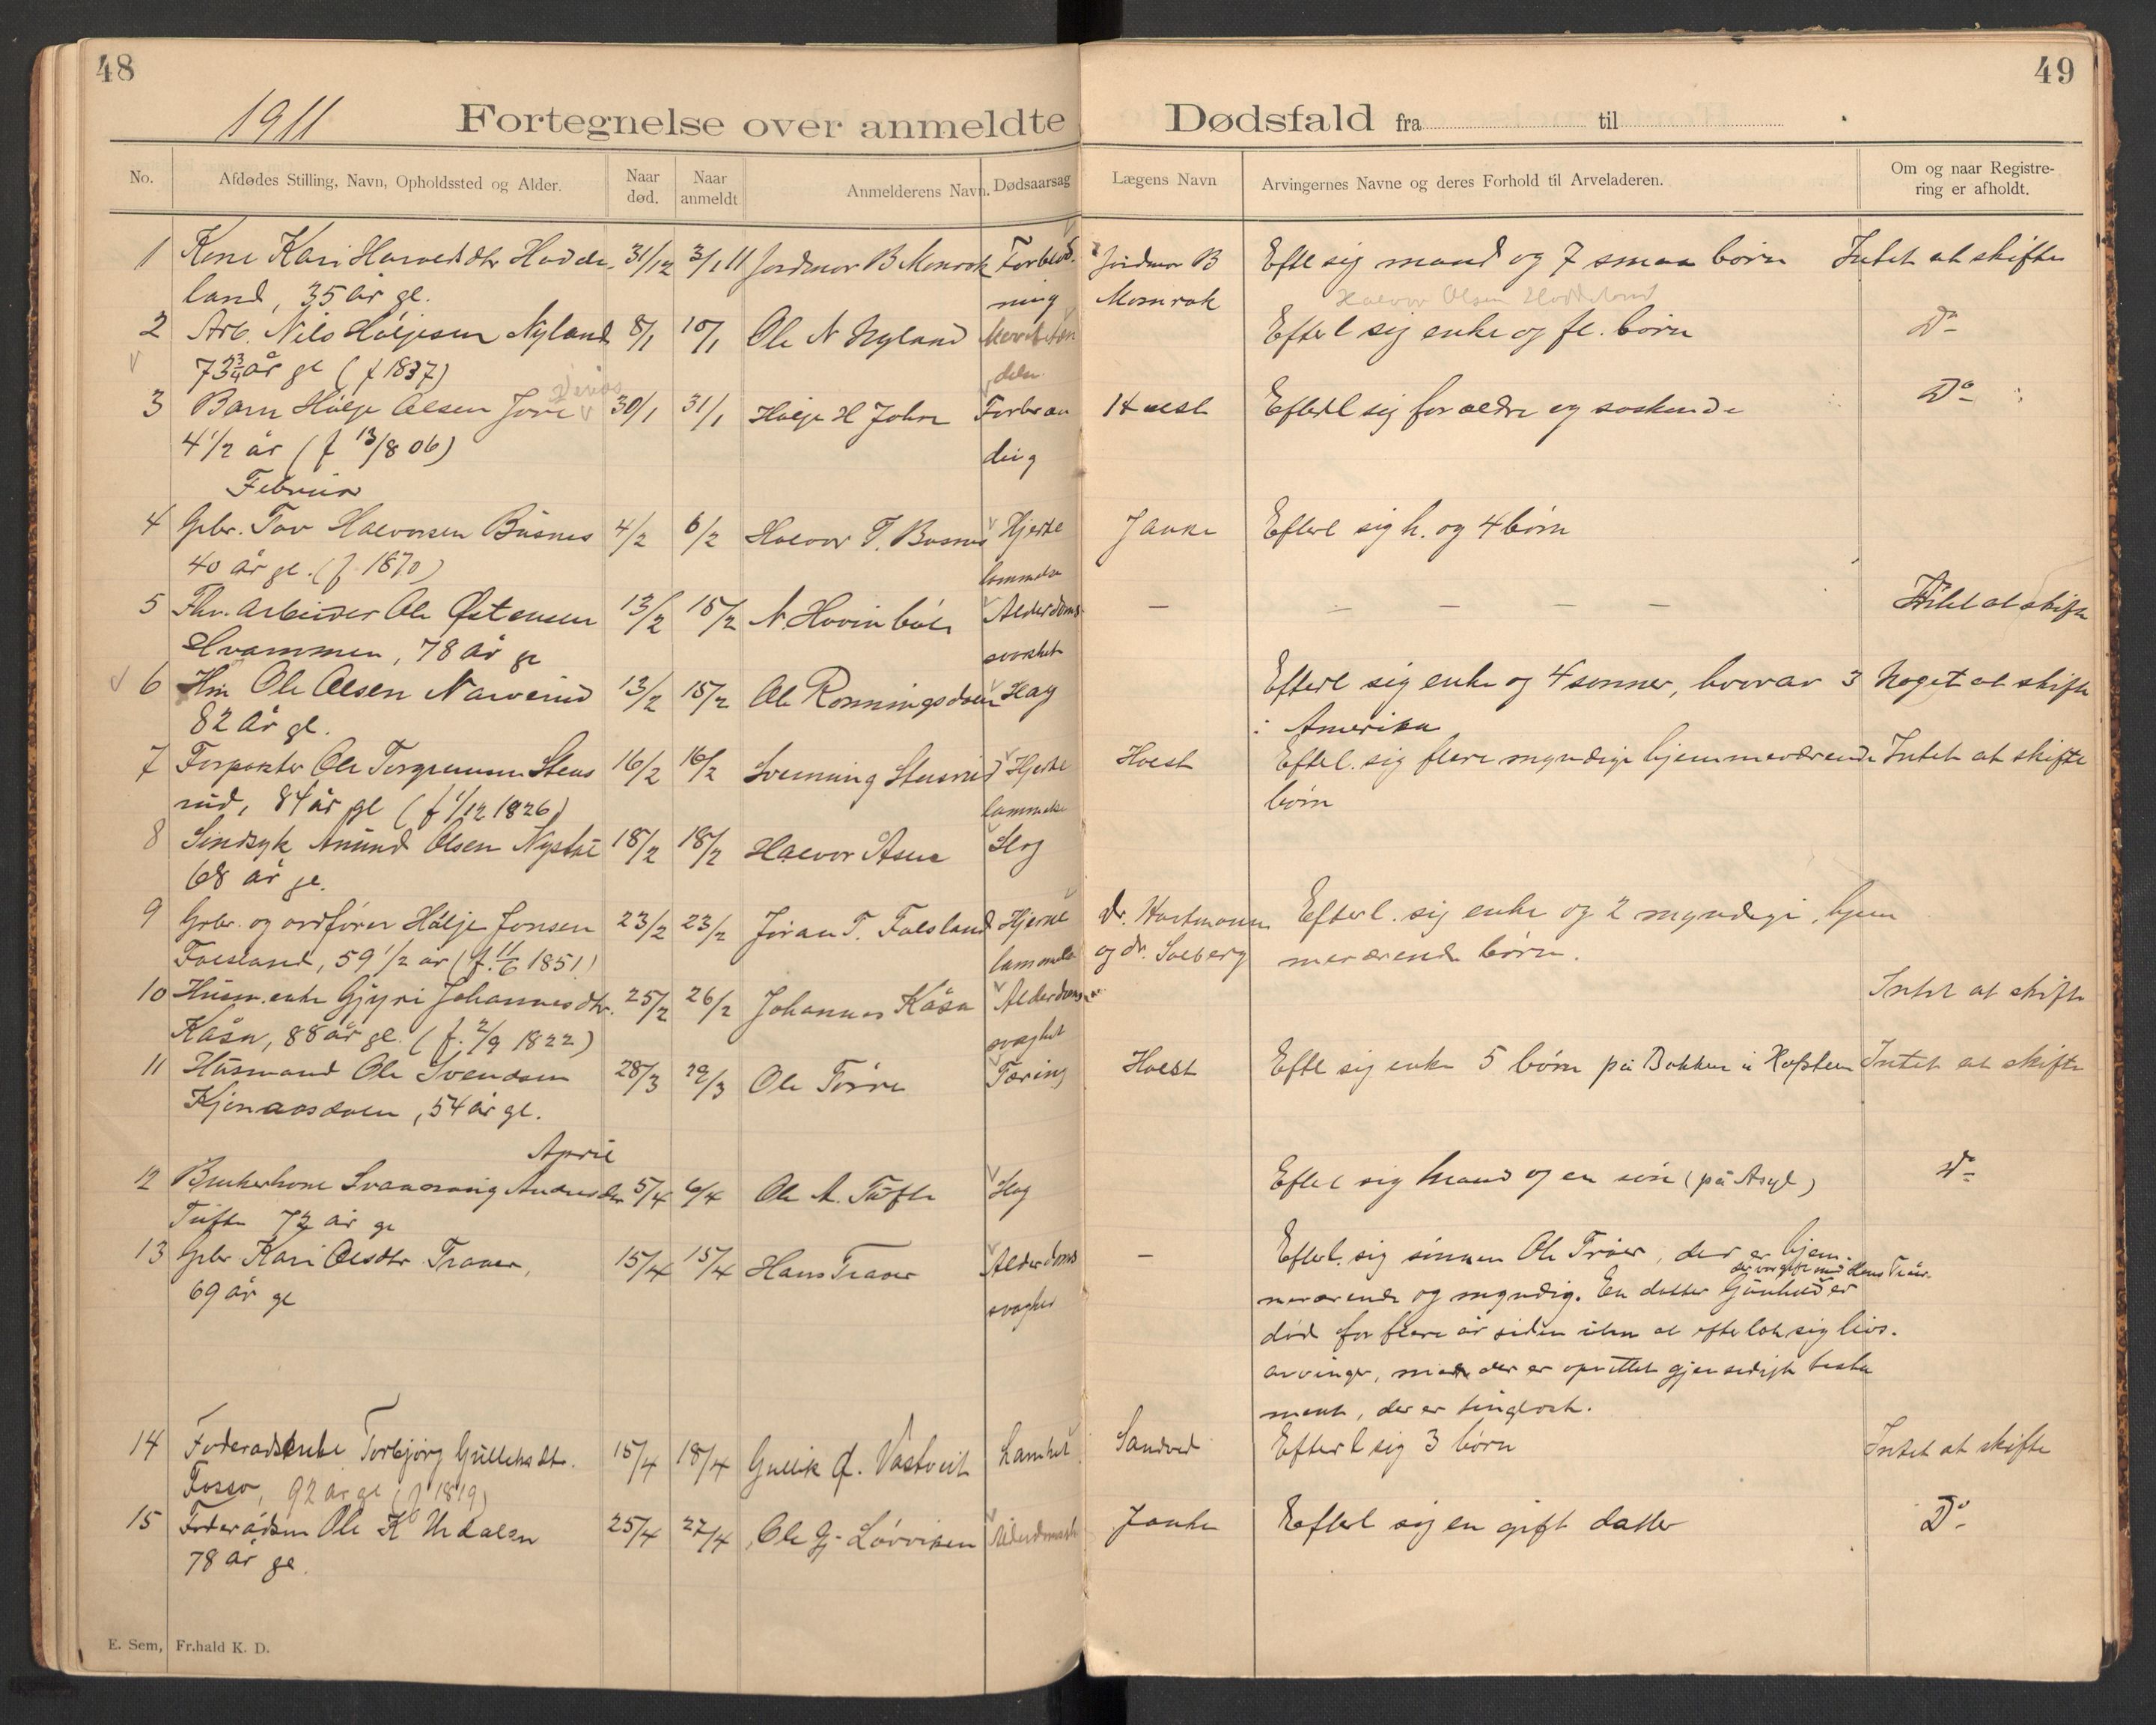 48
49
1911
Fortegnelse over anmeldte Dødsfald fra til
No.
Afdødes Stilling, Navn, Opholdssted og Alder.
Naar død.
Naar anmeldt
Anmelderens Navn.
Dødsaarsag
Lægens Navn
Arvingernes Navne og deres Forhold til Arveladeren.
Om og naar Registrering er afholdt.
1 Kone Kari Halvorsdtr Hodde- 31/12 3/1 11 Jordmor B Momrak Forblød- Jordmor B Efterl sig mand og 7 smaa børn Intet at skifte
land, 35 år gl. ning Momrak Halvor Olsen Hoddeland
2 Arb. Nils Høljesen Nyland 8/1 10/1 Ole N Nyland Efterl sig enke og fl. børn Do
73 3/4 år gl (f 1837)
3 Barn Hølje Olsen Jore 30/1 31/1 Hølje H Forbræn Holst Efterl sig forældre og søskende Do
4 1/2 år (f 13/8 06) ding
Februar
4 Gbr. Tov Halvorsen Busnes 4/2 6/2 Halvor T. Busnes Hjerte Janke Efterl sig h. og 4 børn
40 år gl. (f. 1870) lammelse
5 Fhv. arbeider Ole Østensen 13/2 15/2 N. Hovinbøle Alderdoms — — — — — Intet at skifte
Hvammen, 78 år gl svakhet
6 Hm Ole Olsen Narverud 13/2 15/2 Ole Rønningsdalen Slag Efterl sig enke og 4 sønner, hvorav 3 Noget at skifte
82 år gl. i Amerika
7 Forpakter Ole Torgrimsen Stens 16/2 16/2 Svenning Stusrud Hjerte Holst Efterl. sig flere myndige hjemmeværende Intet at skifte
rud, 84 år gl (f 1/12 1826) lammelse børn
8 Sindsyk Amund Olsen 18/2 18/2 Halvor Slag
68 år gl.
9 Gbr. og ordfører Hølje Jonsen 23/2 23/2 Jøran T. Folsland Hjerne Dr. Hartmann Efterl. sig enke og 2 myndige, hjem
Folsland, 59 1/2 år (f. 11/6 1851) lammelse og dr. Solberg meværende børn.
10 Husm.enke Gjyri Johannesdtr. 25/2 26/2 Johannes Kåsa Alderdoms Intet at skifte
Kåsa, 88 år gl. (f. 2/9 1822) svaghet
11 Husmand Ole Svendsen 28/3 29/3 Ole Tæring Holst Efterl sig enke 5 børn på Bakken i Intet at skifte
Kjonaasdalen, 54 år gl.
April
12 Brukerkone Andresdtr 5/4 6/4 Ole A. Tufte Slag Efterl sig mand og en søn (på Asyl) Do
Tufte 72 år gl
13 Gbr Kari Olsdtr Traaer, 15/4 15/4 Hans Traaer Alderdoms — Efterl. sig sønnen Ole Tråer, der er hjem-
69 år gl svaghet der var gift med Hans Tråer.
meværende og myndig. En datter Gunhild er
død for flere år siden uten at efterlate sig livs-
arvinger, men der er oprettet gjensidigt testa
ment, der er tinglæst.
14 Føderådsenke Torbjørg Gulliksdtr. 15/4 18/4 Gullik O. Våstveit Lamhet Sandved Efterl sig 3 børn Intet at skifte
Fosso, 92 år gl (f 1819)
15 Føderådsm Ole K Urdalen 25/4 27/4 Ole G. Løvviken Janke Efterl sig en gift datter Do
78 år gl.
E. Sem, Fr.hald K. D.